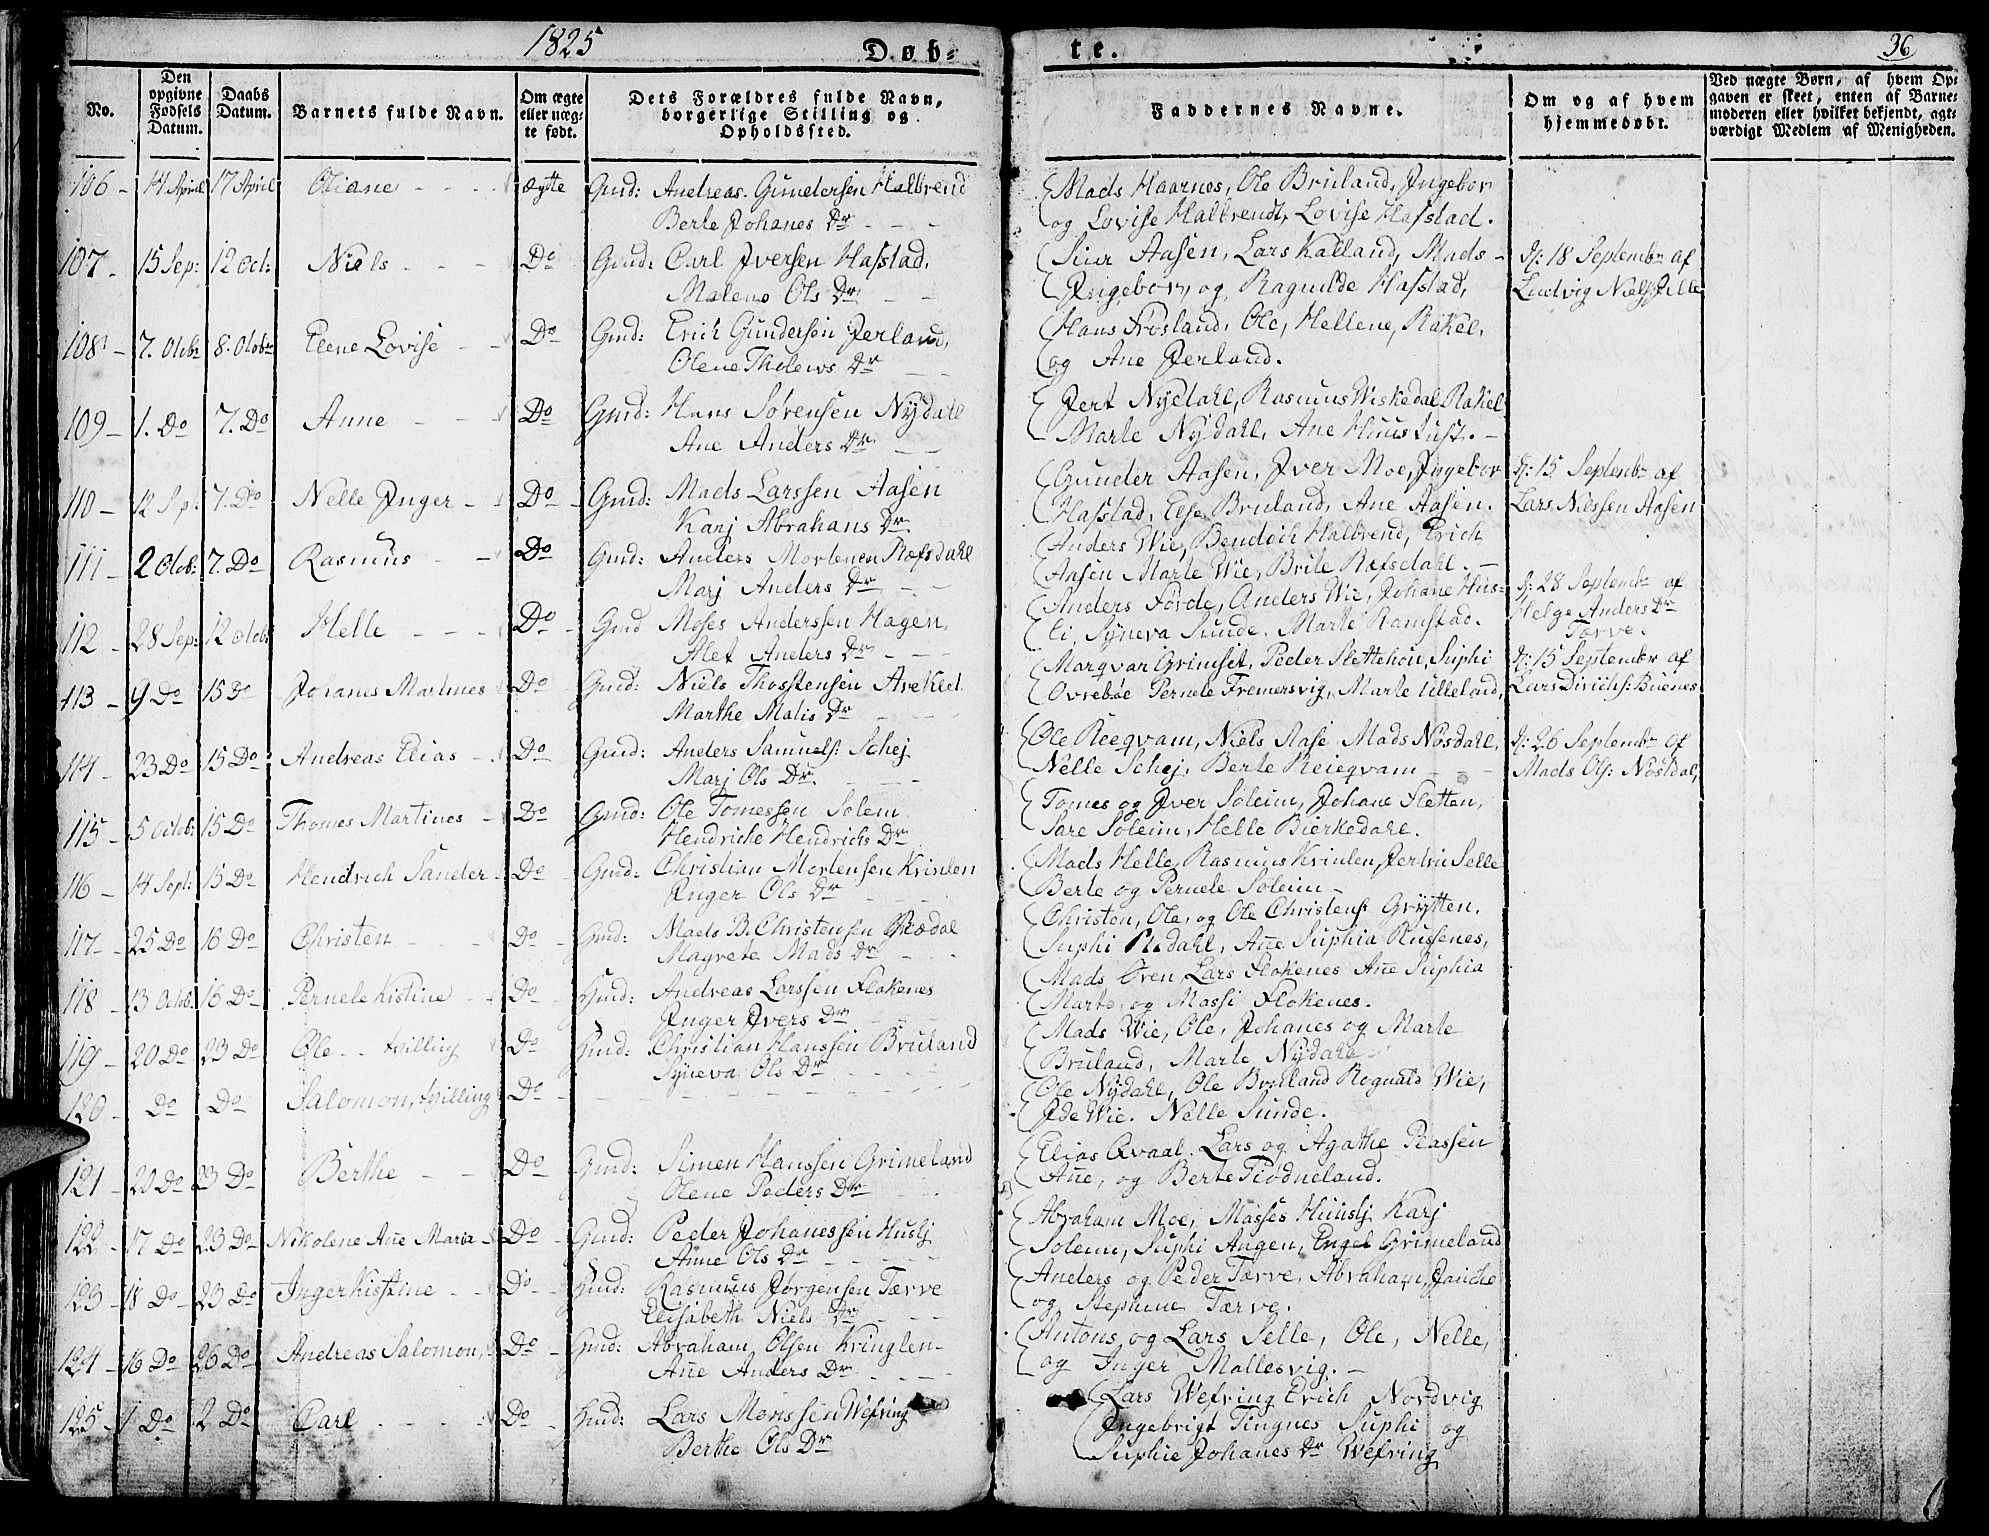 1825
Døb-
te.
36
No.
Den opgivne Fødsels Datum.
Daabs Datum.
Barnets fulde Navn.
Om ægte eller nægte født.
Dets Forældres fulde Navn, borgerlige Stilling og Opholdssted.
Faddernes Navne.
Om og af hvem hjemmedøbt.
Ved nægte Børn, af hvem Opgaven er skeet, enten af Barnemoderen eller hvilket bekjendt, agtværdigt Medlem af Menigheden.
106 - 14 April 17 April Oliane - - - ægte Gmd: Andreas Gundersen Halbrend
Berte Johanes Dr - - -
Mads Haarnes, Ole Bruland, Ingebor
og Lovise Halbrendt, Lovise Hafstad.
107 - 15 Sep: 12 Oct: Niels - - - Do Gmd: Carl Iversen Hafstad,
Malene Ols Dr - -
Siur Aasen, Lars Kalland, Mads -
Ingebor, og Ragnilde Hafstad,
Dj: 18 Septembr af
Ludvig Niels Jille
108 - 7. Octbr 8. Octobr Elene Lovise - - Do Gmd: Erich Gundersen Jerland,
Olene Tholews Dr - -
Hans Frøsland, Ole, Hellene, Rakel,
og Ane Jerland.
109 - 1. Do 7. Do Anne - - Do Gmd: Hans Sørensen Nydahl
Ane Anders Dr - -
Jert Nydahl, Rasmus Wiskedal Rakel
Marte Nydahl, Ane Huus Just. -
110 - 12 Sep: 7. Do Nelle Inger - Do - Gmd: Mads Larssen Aasen
Karj Abrahans Dr
Gunder Aasen, Iver Moe, Ingebor
Hafstad, Else Bruland, Ane Aasen.
Dj: 15 Septembr af
Lars Nilssen Aasen
111 - 2 Octb: 7. Do Rasmus - - Do Gmd: Anders Mortenen Refsdahl
Marj Anders Dr - -
Anders Wie, Bendich Halbrend, Erich
Aasen Marte Wie, Brite Refsdahl. -
112 - 28 Sep: 12 Octob: Helle - - - Do - Gmd Moses Anderssen Hagen,
Alet Anders Dr - - -
Anders Førde, Anders Wie, Johane Hus-
li, Syneva Sunde, Marte Ramstad.
Dj: 28 Septembr af
Helge Anders Dr
Tærve.
113 - 9 Do 15 Do Johanes Martines Do - Gmd: Niels Thostensen Areklet
Marthe Matis Dr - - -
Marqvar Grimset, Peder Slettehon, Suphi
Ovrebøe Pernele Fremersvig, Marte Ulleland,
Dj: 15 September af
Lars Dirichs: Buenes
114 - 23 Do 15 Do Andreas Elias - Do - Gmd: Anders Samuels: Schej
Marj Ols Dr - -
Ole Reeqvam, Niels Aase Mads Nøsdahl,
Nelle Schej, Berte Reieqvam - -
Dj: 26 Septembr af
Mads Ols: Nøstdal,
115 - 5 Octobr 15 Do Thomes Martines - Do Gmd: Ole Tomessen Solem
Hendriche Hendrichs Dr
Tomes og Iver Soleim, Johane Sletten,
Sare Soleim, Helle Bierkedahl.
116 - 14 Sept: 15 Do Hendrich Sander - Do - Gmd: Christian Mortensen Krinlen
Inger Ols Dr - - -
Mads Helle, Rasmus Krinlen, Jertru Selle
Berte og Pernele Soleim -
117 - 25 Do 16 Do Christen - - Do - Gmd: Mads B. Christensen Rædal
Magrete Mads Dr - - -
Christen, Ole, og Ole Christens: Grytten.
Suphi Rædahl, Ane Suphia Russenes,
118 - 13 Octob: 16 Do Pernele Kistine - - Do - Gmd: Andreas Larssen Flokenes
Inger Ivers Dr - - -
Mads Øren, Lars Flokenes Ane Suphia
Marte, og Massi Flokenes.
119 - 20 Do 23 Do Ole - - tvilling Do Gmd: Christian Hanssen Bruland
Syneva Ols Dr - - -
Mads Wie, Ole, Johanes og Marte
Bruland, Marte Nydahl -
120 - Do Do Salomon, tvilling Do - - - -
Ole Nydahl, Ole Bruland Rognald Wie,
Ide Wie. Nelle Sunde.
121 - 20 Do 23 Do Berthe - - Do - Gmd: Simen Hanssen Grimeland
Olene Peders Dtr - -
Elias Qvaal. Lars og Agathe Plassen
Ane, og Berte Flødneland.
122 - 17 Do 23 Do Nikolene Ane Maria - Do - Gmd: Peder Johanessen Huslj
Anne Ols Dr - - - -
Abraham Moe, Masses Huuslj Karj
Soleim, Suphi Angen, Engel Grimeland
123 - 18 Do - 23 Do Inger Kistine - - Do - Gmd: Rasmus Jørgensen Tærve
Elisabeth Niels Dr - - -
Anders og Peder Tærve, Abraham, Janiche
og Stephine Tærve.
124 - 16 Do 26 Do Andreas Salomon, Do - Gmd: Abraham Olsen Kringlen -
Ane Anders Dr - - - -
Antons, og Lars Selle, Ole, Nelle,
og Inger Mallesvig. -
125 - 1 Do 2 Do Carl - - - Do - Gmd: Lars Monssen Wefring
Berthe Ols Dr
Lars Wefring Erich Nordvig
Ingebrigt Tingnes Suphi og
Suphie Johanes Dr Wefring